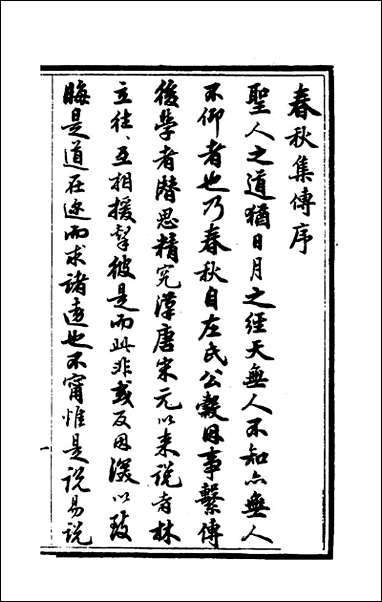 春秋集傳序
聖人之道猶日月之經天無人不知亦無人
不仰者也乃春秋自左氏公穀因事繫傳
後學者潛思精究漢唐宋元以来說者林
立往、互相援掣彼是而此非或反因淺以致
晦是道在迩而求諸遠也不甯惟是說易說
一